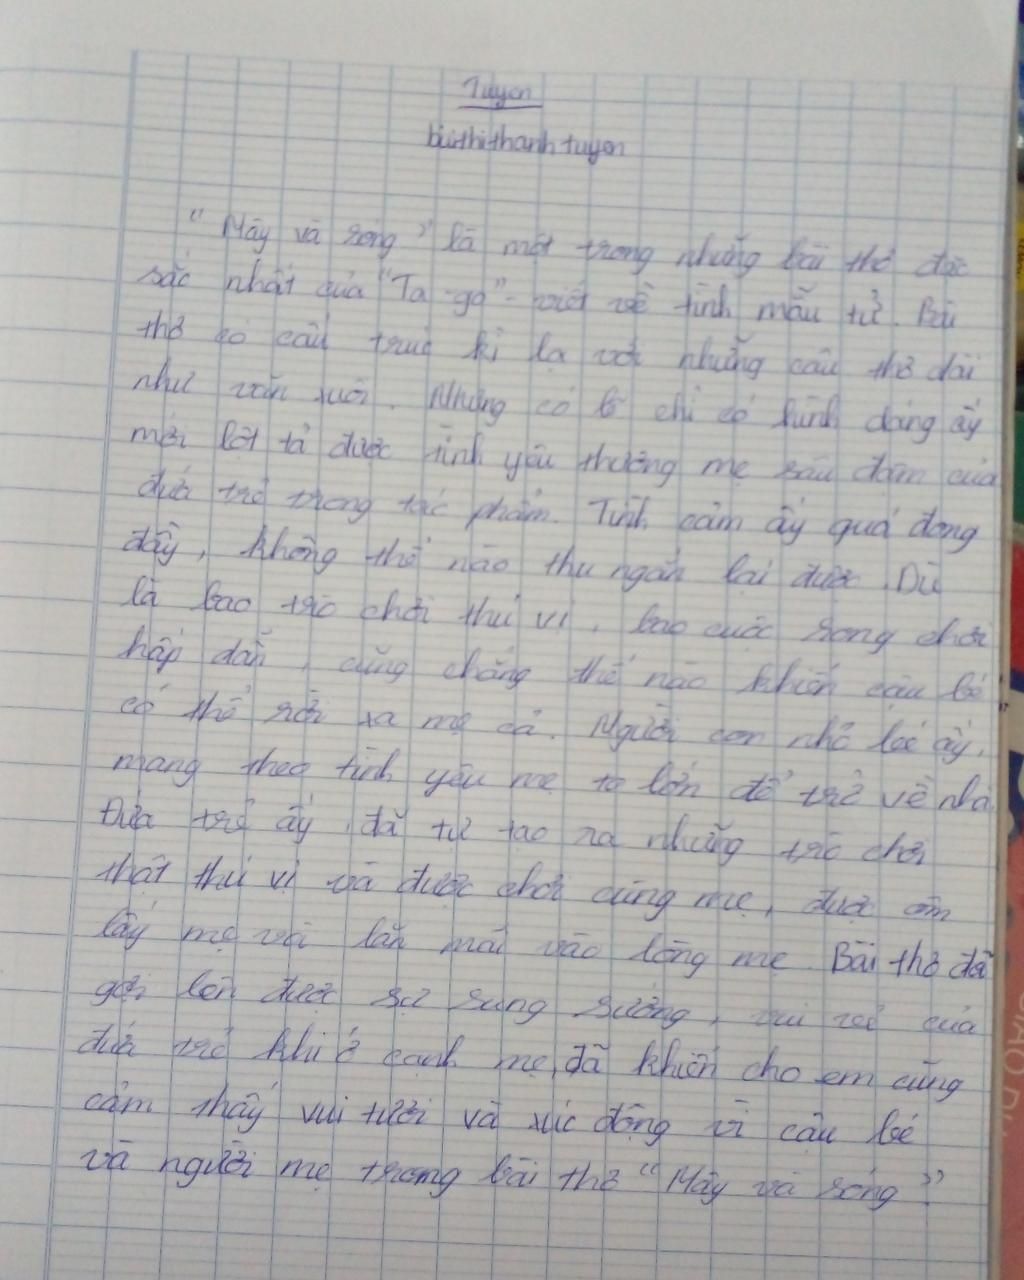 Tuyen
buithithanhtuyen
"Mây và sóng" là một trong những bài thơ đặc
sắc nhất của "Ta-go" - viết về tình mẫu tử. Bài
thơ có cấu trúc kì lạ với những câu thơ dài
như văn xuôi. Nhưng có lẽ chỉ có hình dáng ấy
mới lột tả được tình yêu thương mẹ sâu đậm của
đứa trẻ trong tác phẩm. Tình cảm ấy quá đong
đầy, không thể nào thu ngắn lại được. Dù
là bao trò chơi thú vị, bao cuộc rong chơi
hấp dẫn, cũng chẳng thể nào khiến cậu bé
có thể rời xa mẹ cả. Người con nhỏ bé ấy,
mang theo tình yêu mẹ to lớn để trở về nhà.
Đứa trẻ ấy, đã tự tạo ra những trò chơi
thật thú vị và được chơi cùng mẹ, được ôm
lấy mẹ và lăn mãi vào lòng mẹ. Bài thơ đã
gợi lên được sự sung sướng, vui vẻ của
đứa trẻ khi ở cạnh mẹ, đã khiến cho em cũng
cảm thấy vui tươi và xúc động vì cậu bé
và người mẹ trong bài thơ "Mây và sóng".